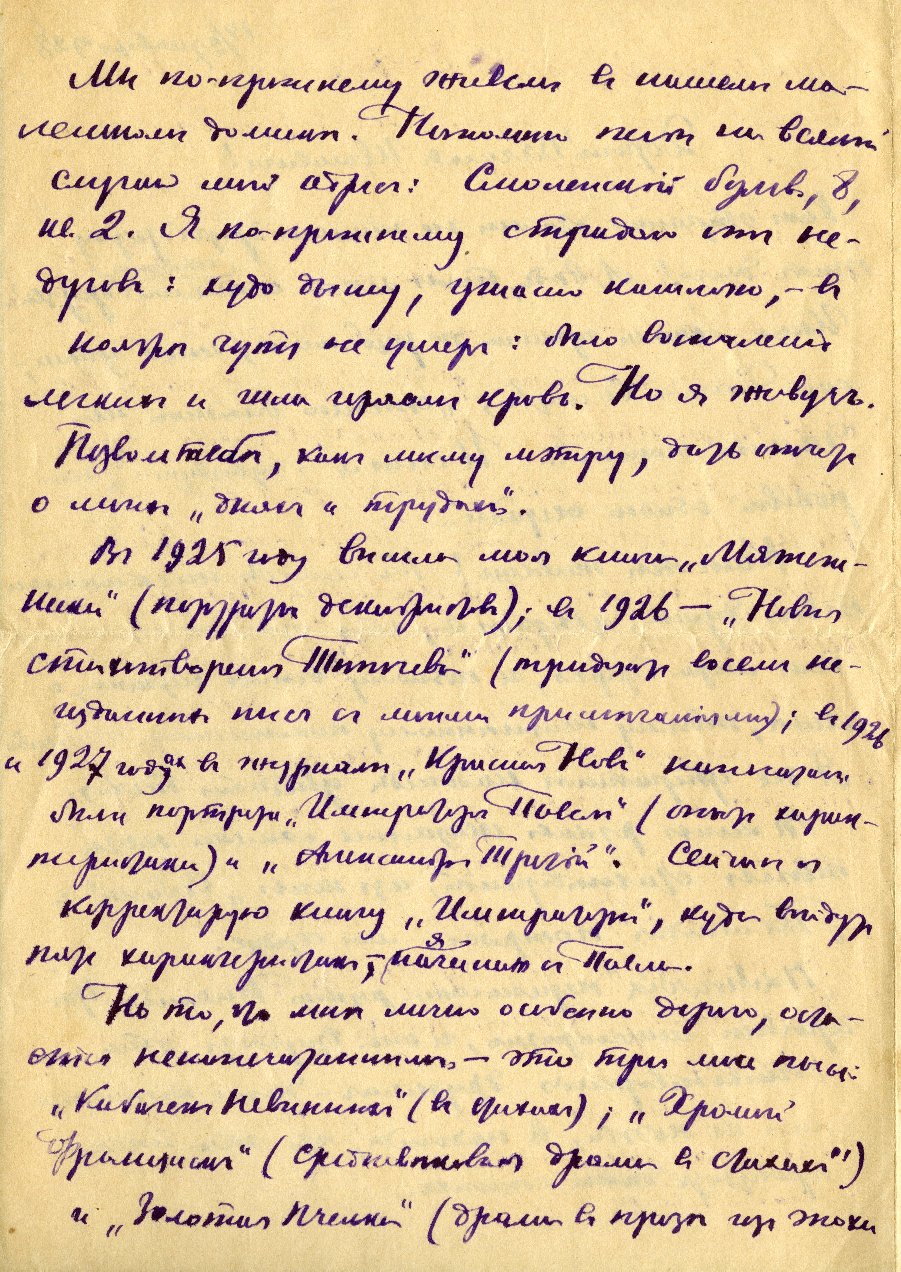 Мы по-прежнему живем в нашем ма-
леньком домике. Напомню Вам на всякий
случай мой адрес: Смоленский бульв., 8,
кв. 2. Я по-прежнему страдаю от не-
дугов: худо дышу, ужасно кашляю, – в
ноябре чуть не умер: было воспаление
легких и шла горлом кровь. Но я живуч.
Позвольте, как милому мэтру, дать отчет
о моих „днях и трудах“.
В 1925 году вышла моя книга „Мятеж-
ники“ (портреты декабристов); в 1926 – „Новые
стихотворения Тютчева“ (тридцать восемь не-
изданных пиес с моими примечаниями); в 1926
и 1927 годах в журнале „Красная Новь“ напечатаны
были портреты „Император Павел“ (опыт харак-
теристики) и „Александр Третий“. Сейчас я
корректирую книгу „Императоры“, куда войдут
пять характеристик, начиная с Павла.
Но то, что мне лично особенно дорого, оста-
ется ненапечатанным, – это три мои пьесы:
„Кабачек Невинных“ (в стихах); „Хромой
Франциск“ (средневековая драма в стихах)
и „Золотая Пчелка“ (драма в прозе из эпохи